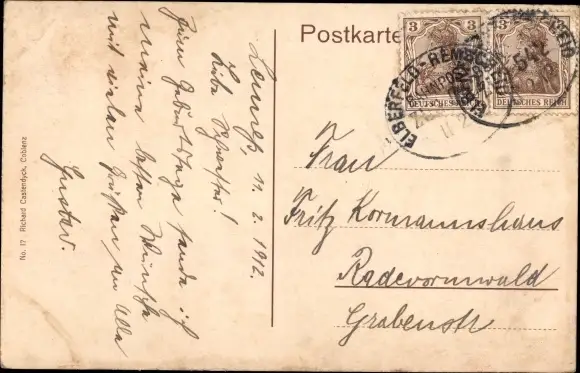 Postkarte
3
3
DEUTSCHES REICH
DEUTSCHES REICH
ELBERFELD-REMSCHEID
Lennep, 11. 2. 1912.
Liebe Schwester!
Zum Geburtstage sende ich
meine besten Wünsche
mit vielen Grüßen an Alle
Gustav.
Frau
Fritz Kormannshaus
Radevormwald
Grabenstr
No. 17 Richard Castendyck, Coblenz